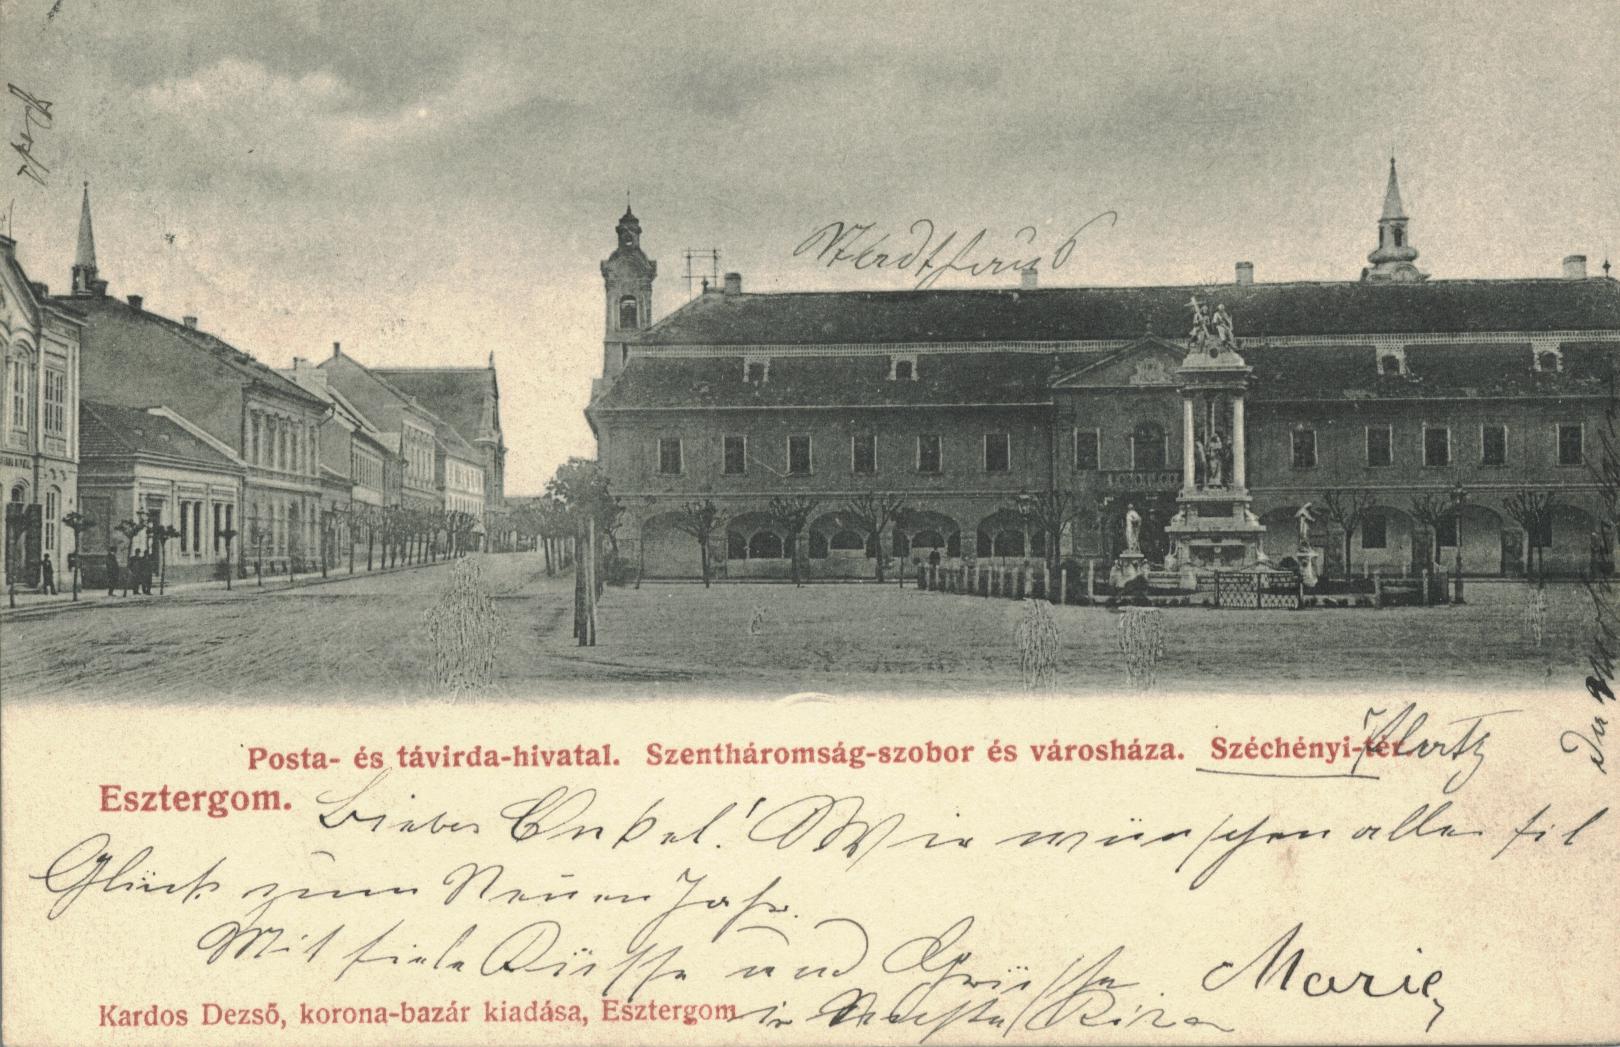 Stadthaus
Posta- és távirda-hivatal. Szentháromság-szobor és városháza. Széchényi-tér.
Platz
Esztergom.
Liebes Onkel! Wir wünschen alles fil
Glück zum Neuen Jahr.
Mit fiele Küsse und Grüsse Marie
Kardos Dezső, korona-bazár kiadása, Esztergom